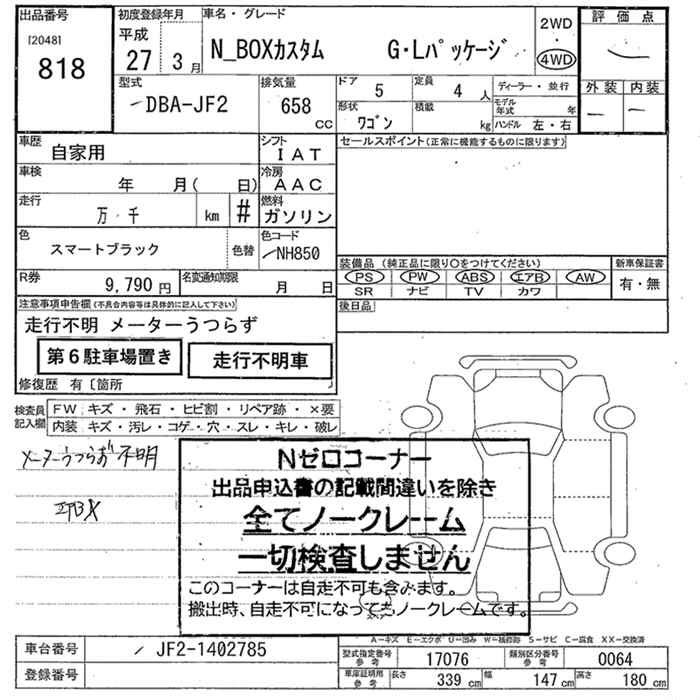 出品番号
[2048]
818
初度登録年月
平成
27
3月
車名・グレード
N_BOXカスタム G・Lパッケージ
2WD
・
4WD
評価点
外装 内装
型式
DBA-JF2
排気量
658
cc
ドア
5
定員
4人
形状
ワゴン
積載
kg
ディーラー・並行
モデル年式 年
ハンドル 左・右
車歴
自家用
シフト
IAT
セールスポイント(正常に機能するものに限ります)
車検
年 月( 日)
冷房
AAC
走行
万 千 km #
燃料
ガソリン
色
スマートブラック
色替
色コード
NH850
R券
9,790円
名変通知期限
月 日
装備品(純正品に限り○をつけてください)
PS PW ABS エアB AW
SR ナビ TV カワ
新車保証書
有・無
後日品
注意事項申告欄(不具合内容等は具体的に記入して下さい)
走行不明 メーターうつらず
第6駐車場置き
走行不明車
修復歴 有〔箇所
検査員記入欄
FW キズ・飛石・ヒビ割・リペア跡・×要
内装 キズ・汚レ・コゲ・穴・スレ・キレ・破レ
メーターうつらず 不明
エアB X
Nゼロコーナー
出品申込書の記載間違いを除き
全てノークレーム
一切検査しません
このコーナーは自走不可も含みます。
搬出時、自走不可になってもノークレームです。
A-キズ E-エクボ U-凹み W-補修跡 S-サビ C-腐食 XX-交換済
車台番号
JF2-1402785
登録番号
型式指定番号
参考
17076
類別区分番号
参考
0064
車庫証明用
参考
長さ
339cm
幅
147cm
高さ
180cm